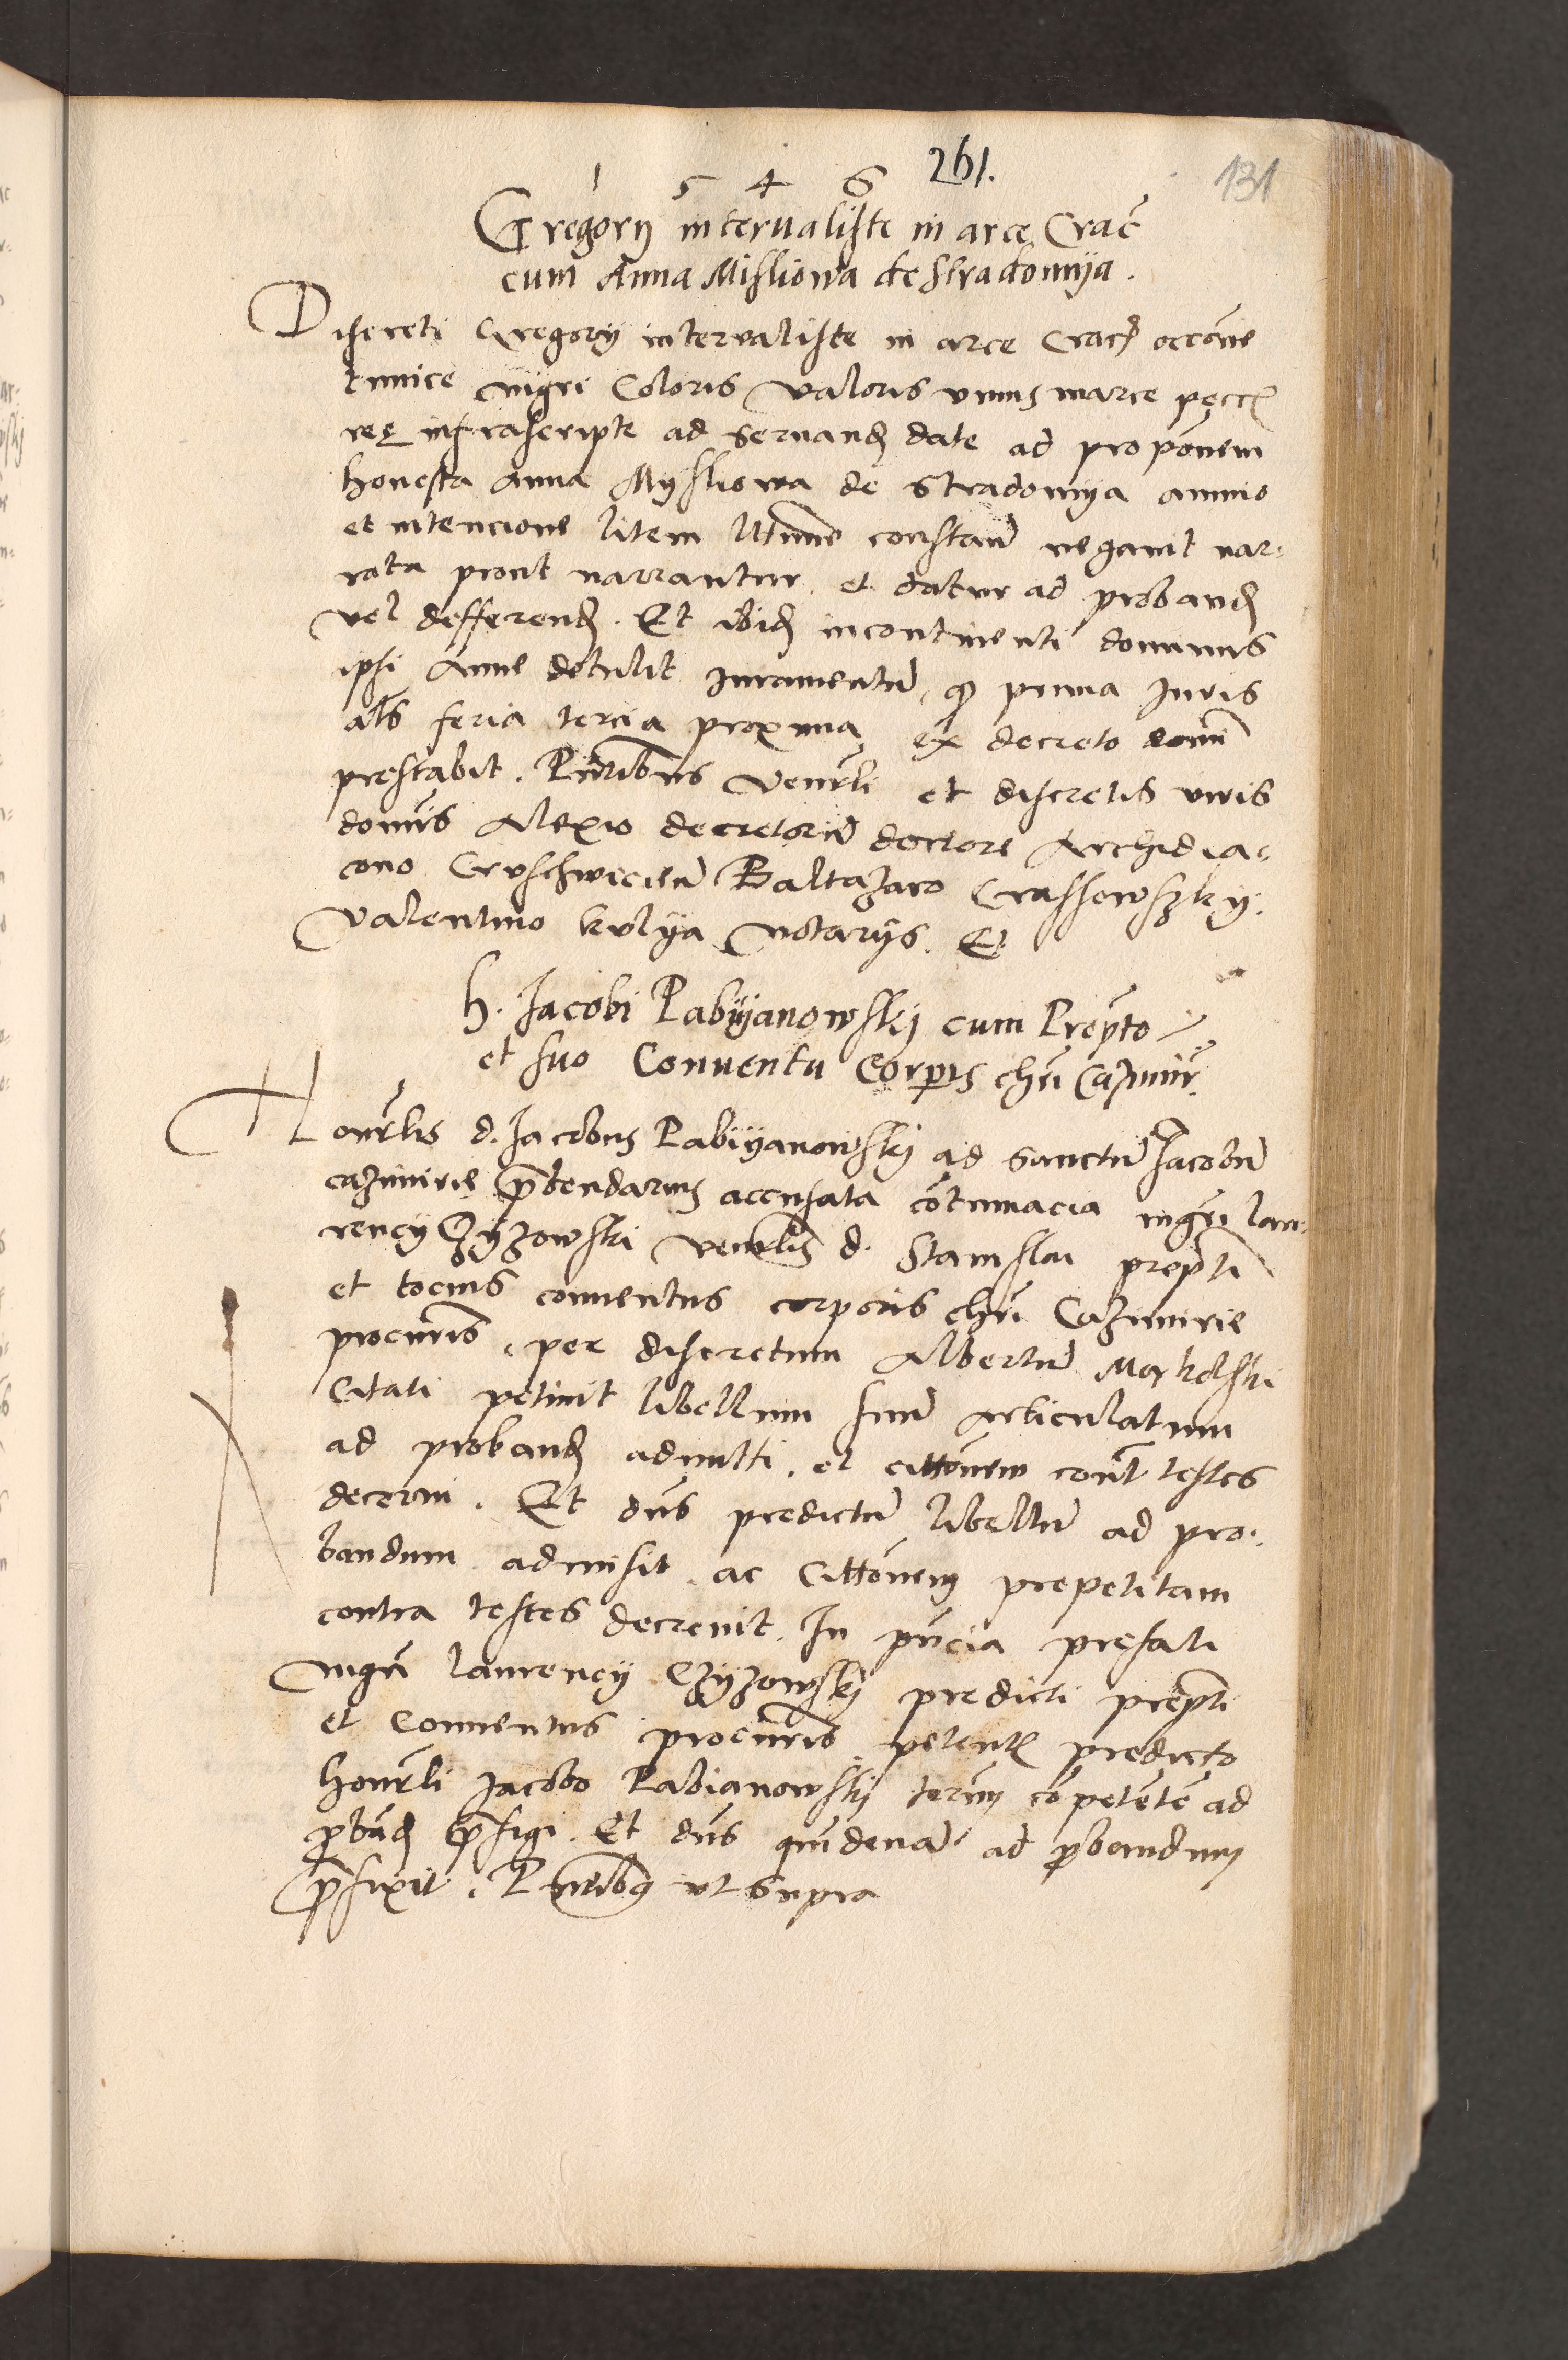 261.
131
1 5 4 6
Gregorij interualiste in arce Crac̃
cum Anna Misliowa de Stradomija.
Discreti Gregorij interualiste in arce Crac̃ occõne
tunice nigri Coloris valoris vnius marce
infrascripte ad seruand date ad propõnem
honesta Anna Mysliowa de Stradomya animo
et intencione litem constañ negauit nar-
rata prout narrantur. et datur ad proband
vel defferend. Et ibid incontinenti dominus
ipsi Anne detulit Iuramentũ, qd prima Iuris
als feria tercia proxima ex decreto domi
prestabit. Pñtibus venrli et discretis viris
dominis Alexio decretorũ doctore Archidia-
cono Cruschwicieñ Baltazaro Crassowszky.
Valentino kulya Notarijs. Et
h. Jacobi Pabyanowskij cum Prepto
et suo Conuentu Corpis chri Cazimir.
Honrlis d. Jacobus Pabiyanowskij ad Sanctũ Jacobũ
cazimirie p̃bendarius accusata cõtumacia mgri lau-
rencij Czyzowski venrlis d. Stanislai prepti
et tocius conuentus corporis chri Cazimirie
procuris, per discretum Albertũ
Citati petiuit libellum suũ Articulatum
ad proband admitti. et cittõnem cont testes
decerni. Et dñs predictũ libellũ ad pro-
bandum admisit ac Cittõnem prepetitam
contra testes decreuit. In pñcia prefati
mgri laurencij Czyzowskij predicti prepti
et Conuentus procuris petent predicto
honrli Jacobo Pabianowskij termĩ cõpetẽtẽ ad
p̃band p̃figi. Et dñs quindenã ad p̃bandum
p̃fixit. Pñtibus vt supra